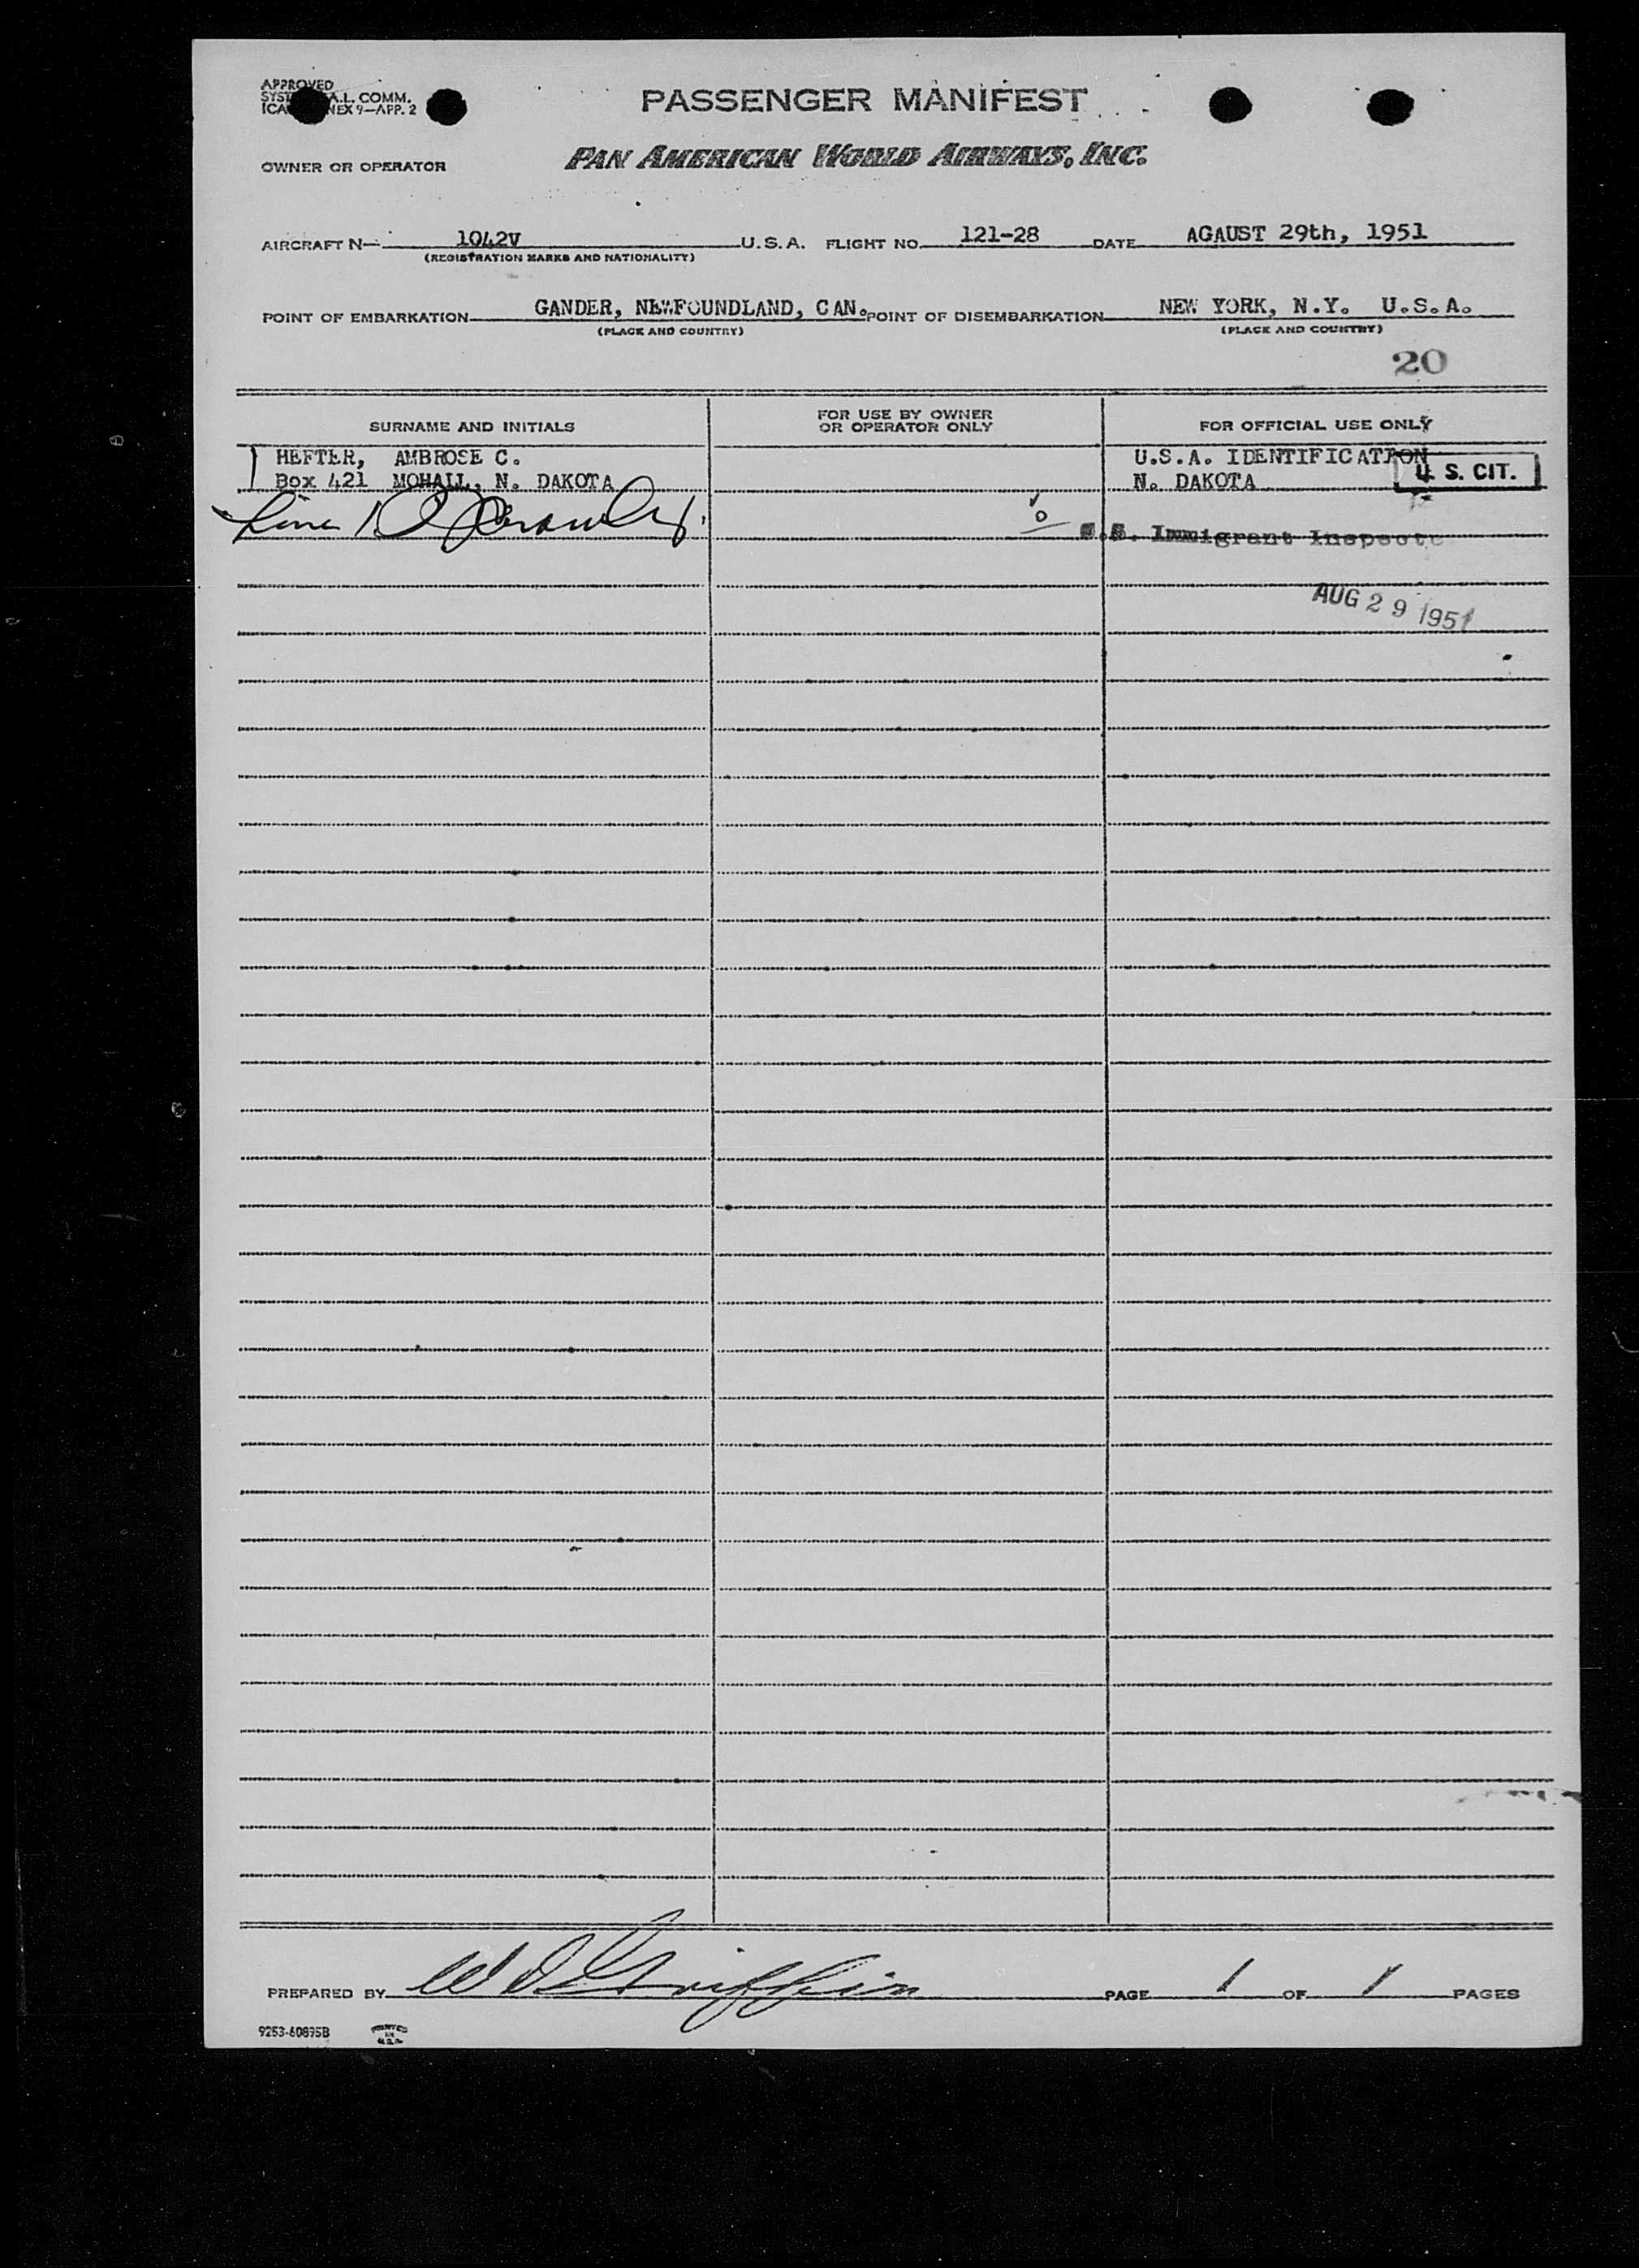 APPROVED
COMM.
9—APP. 2
PASSENGER MANIFEST
OWNER OR OPERATOR
PAN AMERICAN WORLD AIRWAYS, INC.
AIRCRAFT N— 1042V U.S.A. FLIGHT NO. 121-28 DATE AGAUST 29th, 1951
(REGISTRATION MARKS AND NATIONALITY)
POINT OF EMBARKATION GANDER, NEWFOUNDLAND, CAN. POINT OF DISEMBARKATION NEW YORK, N.Y. U.S.A.
(PLACE AND COUNTRY) (PLACE AND COUNTRY)
20
SURNAME AND INITIALS FOR USE BY OWNER OR OPERATOR ONLY FOR OFFICIAL USE ONLY
HEFTER, AMBROSE C. U.S.A. IDENTIFICATION
Box 421 MOHALL, N. DAKOTA N. DAKOTA U. S. CIT.
Line 1
U.S. Immigrant Inspecto
AUG 29 1951
PREPARED BY W D Griffin PAGE 1 OF 1 PAGES
9253-60895B PRINTED IN U.S.A.